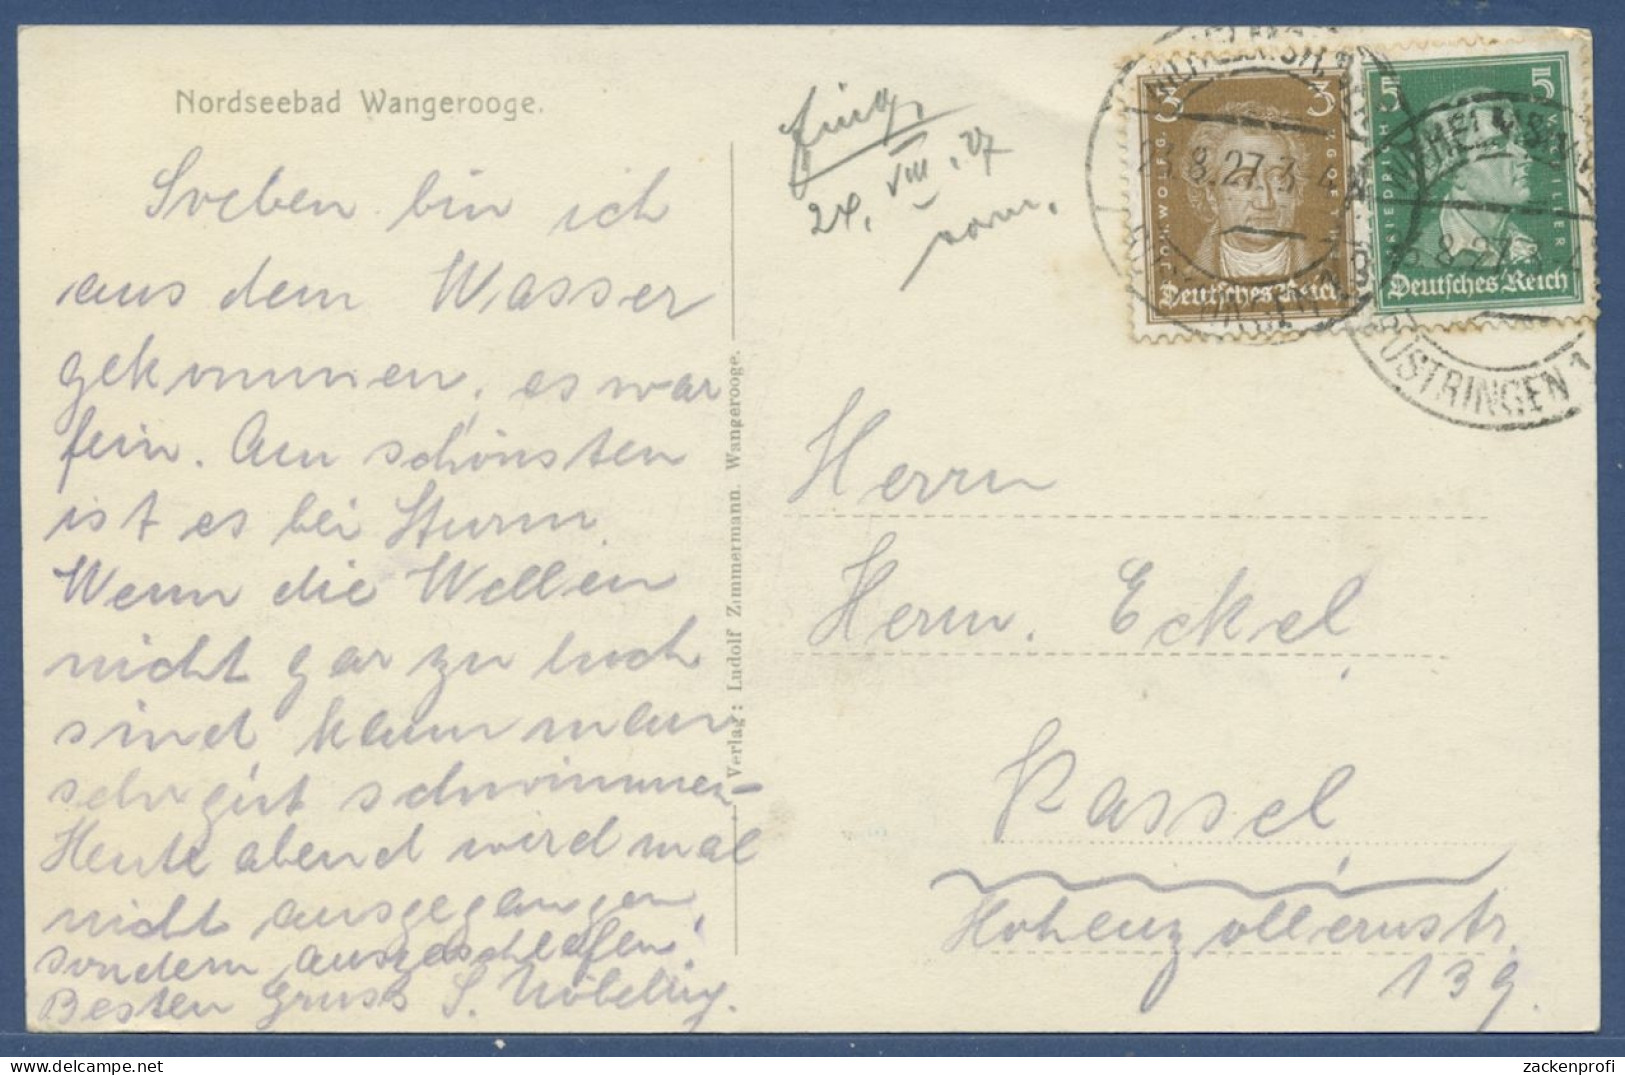 Nordseebad Wangerooge.
Soeben bin ich
aus dem Wasser
gekommen, es war
fein. Am schönsten
ist es bei Sturm.
Wenn die Wellen
nicht gar zu hoch
sind, kann man
sehr gut schwimmen-
Heute abend wird mal
nicht ausgegangen,
sondern ausgeschlafen!
Besten Gruss S.
Verlag: Ludolf Zimmermann. Wangerooge.
24. VIII. 27
3 3
JOH. WOLFG. V. GOETHE
Deutsches Reich
5 5
FRIEDRICH V. SCHILLER
Deutsches Reich
23.8.27.3-4
WILHELMSHAVEN
8.27.3-4
RÜSTRINGEN 1
Herrn
Herm. Eckel,
Kassel,
Hohenzollernstr.
139.
zackenprofi